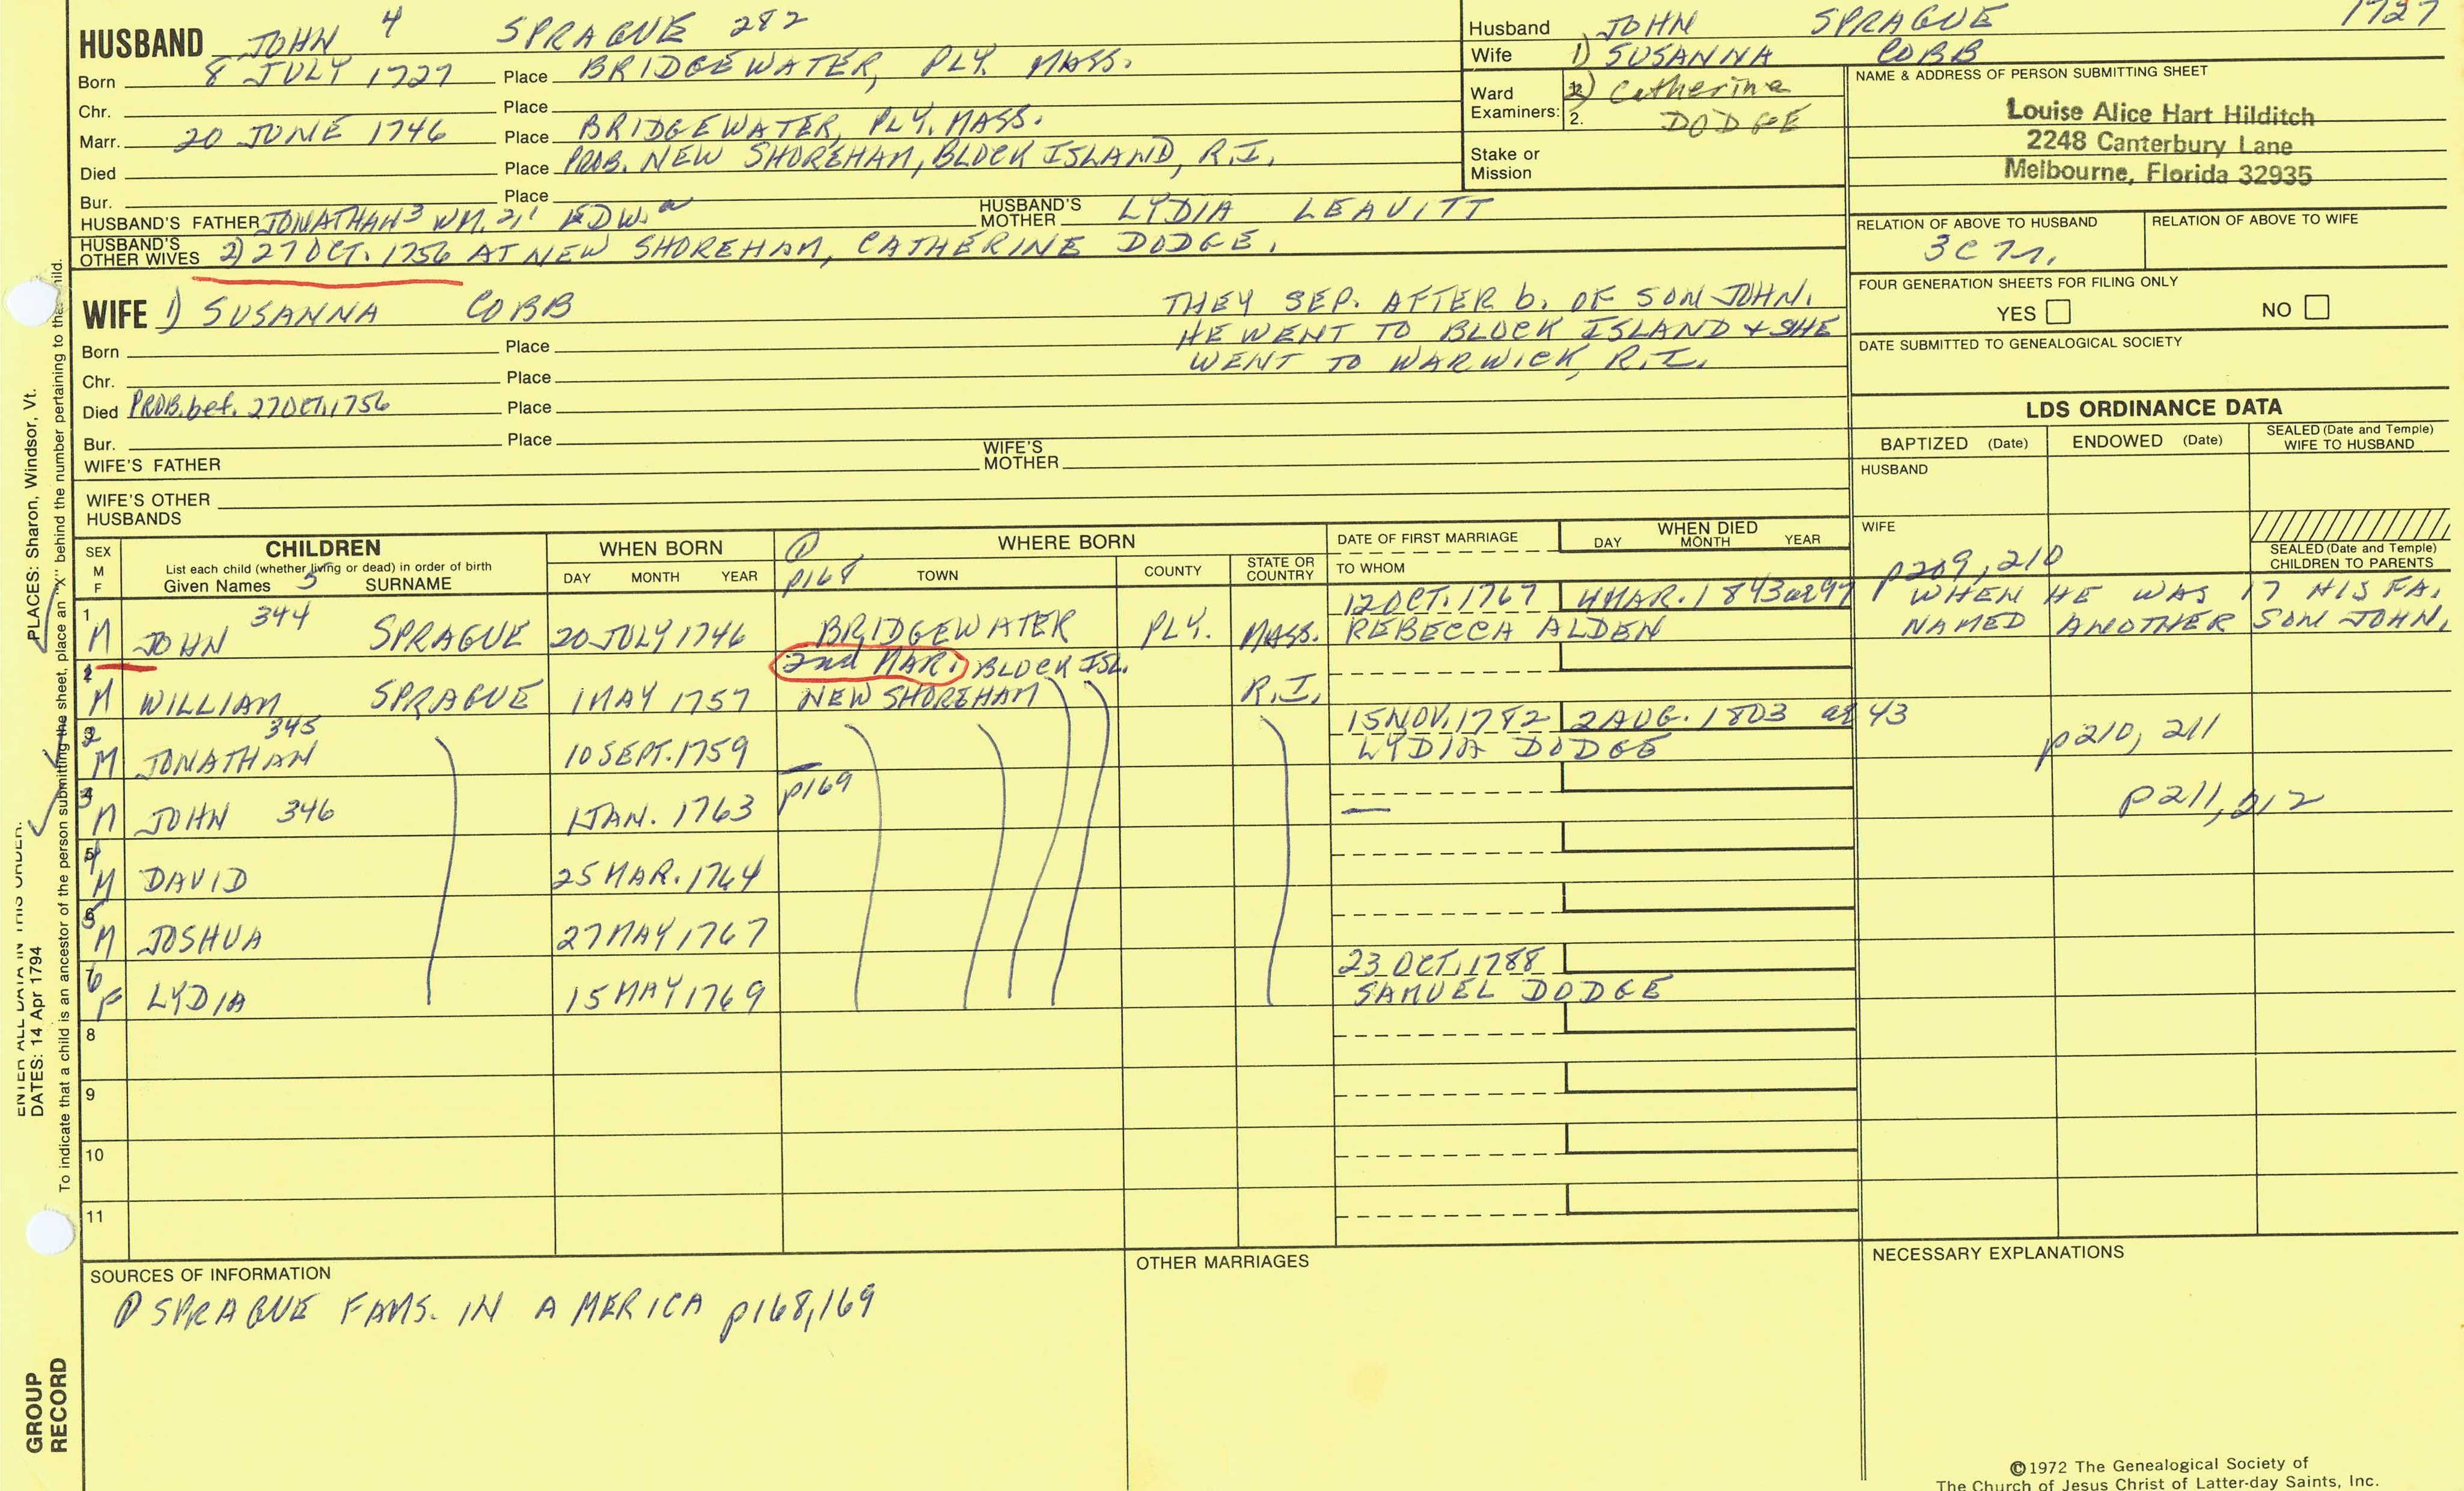 HUSBAND JOHN 4 SPRAGUE 282
Born 8 JULY 1727 Place BRIDGEWATER, PLY. MASS.
Chr. Place
Marr. 20 JUNE 1746 Place BRIDGEWATER, PLY. MASS.
Died Place PROB. NEW SHOREHAM, BLOCK ISLAND, R.I.
Bur. Place
HUSBAND'S FATHER JONATHAN 3 WM. 2, 1 EDW. a HUSBAND'S MOTHER LYDIA LEAVITT
HUSBAND'S OTHER WIVES 2) 27 OCT. 1756 AT NEW SHOREHAM, CATHERINE DODGE.
Husband JOHN SPRAGUE 1727
Wife 1) SUSANNA COBB
Ward Examiners: 2) Catherine
2. DODGE
Stake or Mission
NAME & ADDRESS OF PERSON SUBMITTING SHEET
Louise Alice Hart Hilditch
2248 Canterbury Lane
Melbourne, Florida 32935
RELATION OF ABOVE TO HUSBAND RELATION OF ABOVE TO WIFE
FOUR GENERATION SHEETS FOR FILING ONLY
YES NO
DATE SUBMITTED TO GENEALOGICAL SOCIETY
WIFE 1) SUSANNA COBB
THEY SEP. AFTER b. OF SON JOHN.
HE WENT TO BLOCK ISLAND & SHE
WENT TO WARWICK, R.I.
Born Place
Chr. Place
Died PROB. bef. 27 OCT. 1756 Place
Bur. Place
WIFE'S FATHER WIFE'S MOTHER
WIFE'S OTHER HUSBANDS
LDS ORDINANCE DATA
BAPTIZED (Date) ENDOWED (Date) SEALED (Date and Temple) WIFE TO HUSBAND
HUSBAND
WIFE
SEALED (Date and Temple) CHILDREN TO PARENTS
SEX M F
CHILDREN
List each child (whether living or dead) in order of birth
Given Names 5 SURNAME
WHEN BORN
DAY MONTH YEAR
1 p168
WHERE BORN
TOWN COUNTY STATE OR COUNTRY
DATE OF FIRST MARRIAGE
TO WHOM
WHEN DIED
DAY MONTH YEAR
p209, 210
1 M JOHN 344 SPRAGUE 20 JULY 1746 BRIDGEWATER PLY. MASS. 12 OCT. 1767 4 MAR. 1843 ae 97
REBECCA ALDEN
WHEN HE WAS 17 HIS FA.
NAMED ANOTHER SON JOHN.
2nd MAR. BLOCK ISL.
2 M WILLIAM SPRAGUE 1 MAY 1757 NEW SHOREHAM R.I.
3 2 M JONATHAN 345 10 SEPT. 1759 15 NOV. 1782 2 AUG. 1803 ae 43
LYDIA DODGE
p210, 211
4 3 M JOHN 346 1 JAN. 1763 p169 —
p211, 212
5 4 M DAVID 25 MAR. 1764
6 5 M JOSHUA 27 MAY 1767
7 6 F LYDIA 15 MAY 1769 23 OCT. 1788
SAMUEL DODGE
8
9
10
11
SOURCES OF INFORMATION
1 SPRAGUE FAMS. IN AMERICA p168,169
OTHER MARRIAGES
NECESSARY EXPLANATIONS
©1972 The Genealogical Society of
The Church of Jesus Christ of Latter-day Saints, Inc.
ENTER ALL DATA IN THIS ORDER:
DATES: 14 Apr 1794
PLACES: Sharon, Windsor, Vt.
To indicate that a child is an ancestor of the person submitting the sheet, place an "X" behind the number pertaining to the child.
GROUP
RECORD